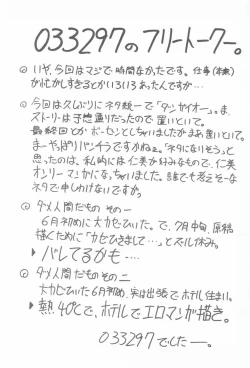 033297のフリートークー。
◎ いや、今回はマジで時間なかったです。仕事(本業)
が忙がしすぎるとかいろいろあったんですが…
◎ 今回は久しぶりにネタ統一で「ダンサイオー」。ま、
ストーリーは予想通りだったので置いといて。
最終回とかボーゼンとしちゃいましたがまあ置いといて。
まーやっぱりバンナイですかねぇ。「ネタになりそう」と
思ったのは、私的には仁美が好みなもので、仁美
オンリーマンガになっちゃいました。誰でも考えそーな
ネタで申しわけないですっ。
◎ ダメ人間だもの その一
6月初めに大カゼひいた。で、7月中旬、原稿
描くために「カゼひきまして…」とズル休み。
▶バレてるかも‥‥
◎ ダメ人間だもの その二
大カゼひいた6月初め、実は出張でホテル住まい。
▶熱40℃で、ホテルでエロマンガ描き。
033297でした―。